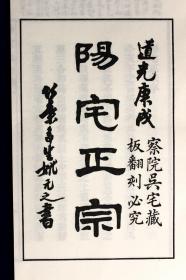 道光庚戌
察院吳宅藏
板翻刻必究
陽宅正宗
姚元之書